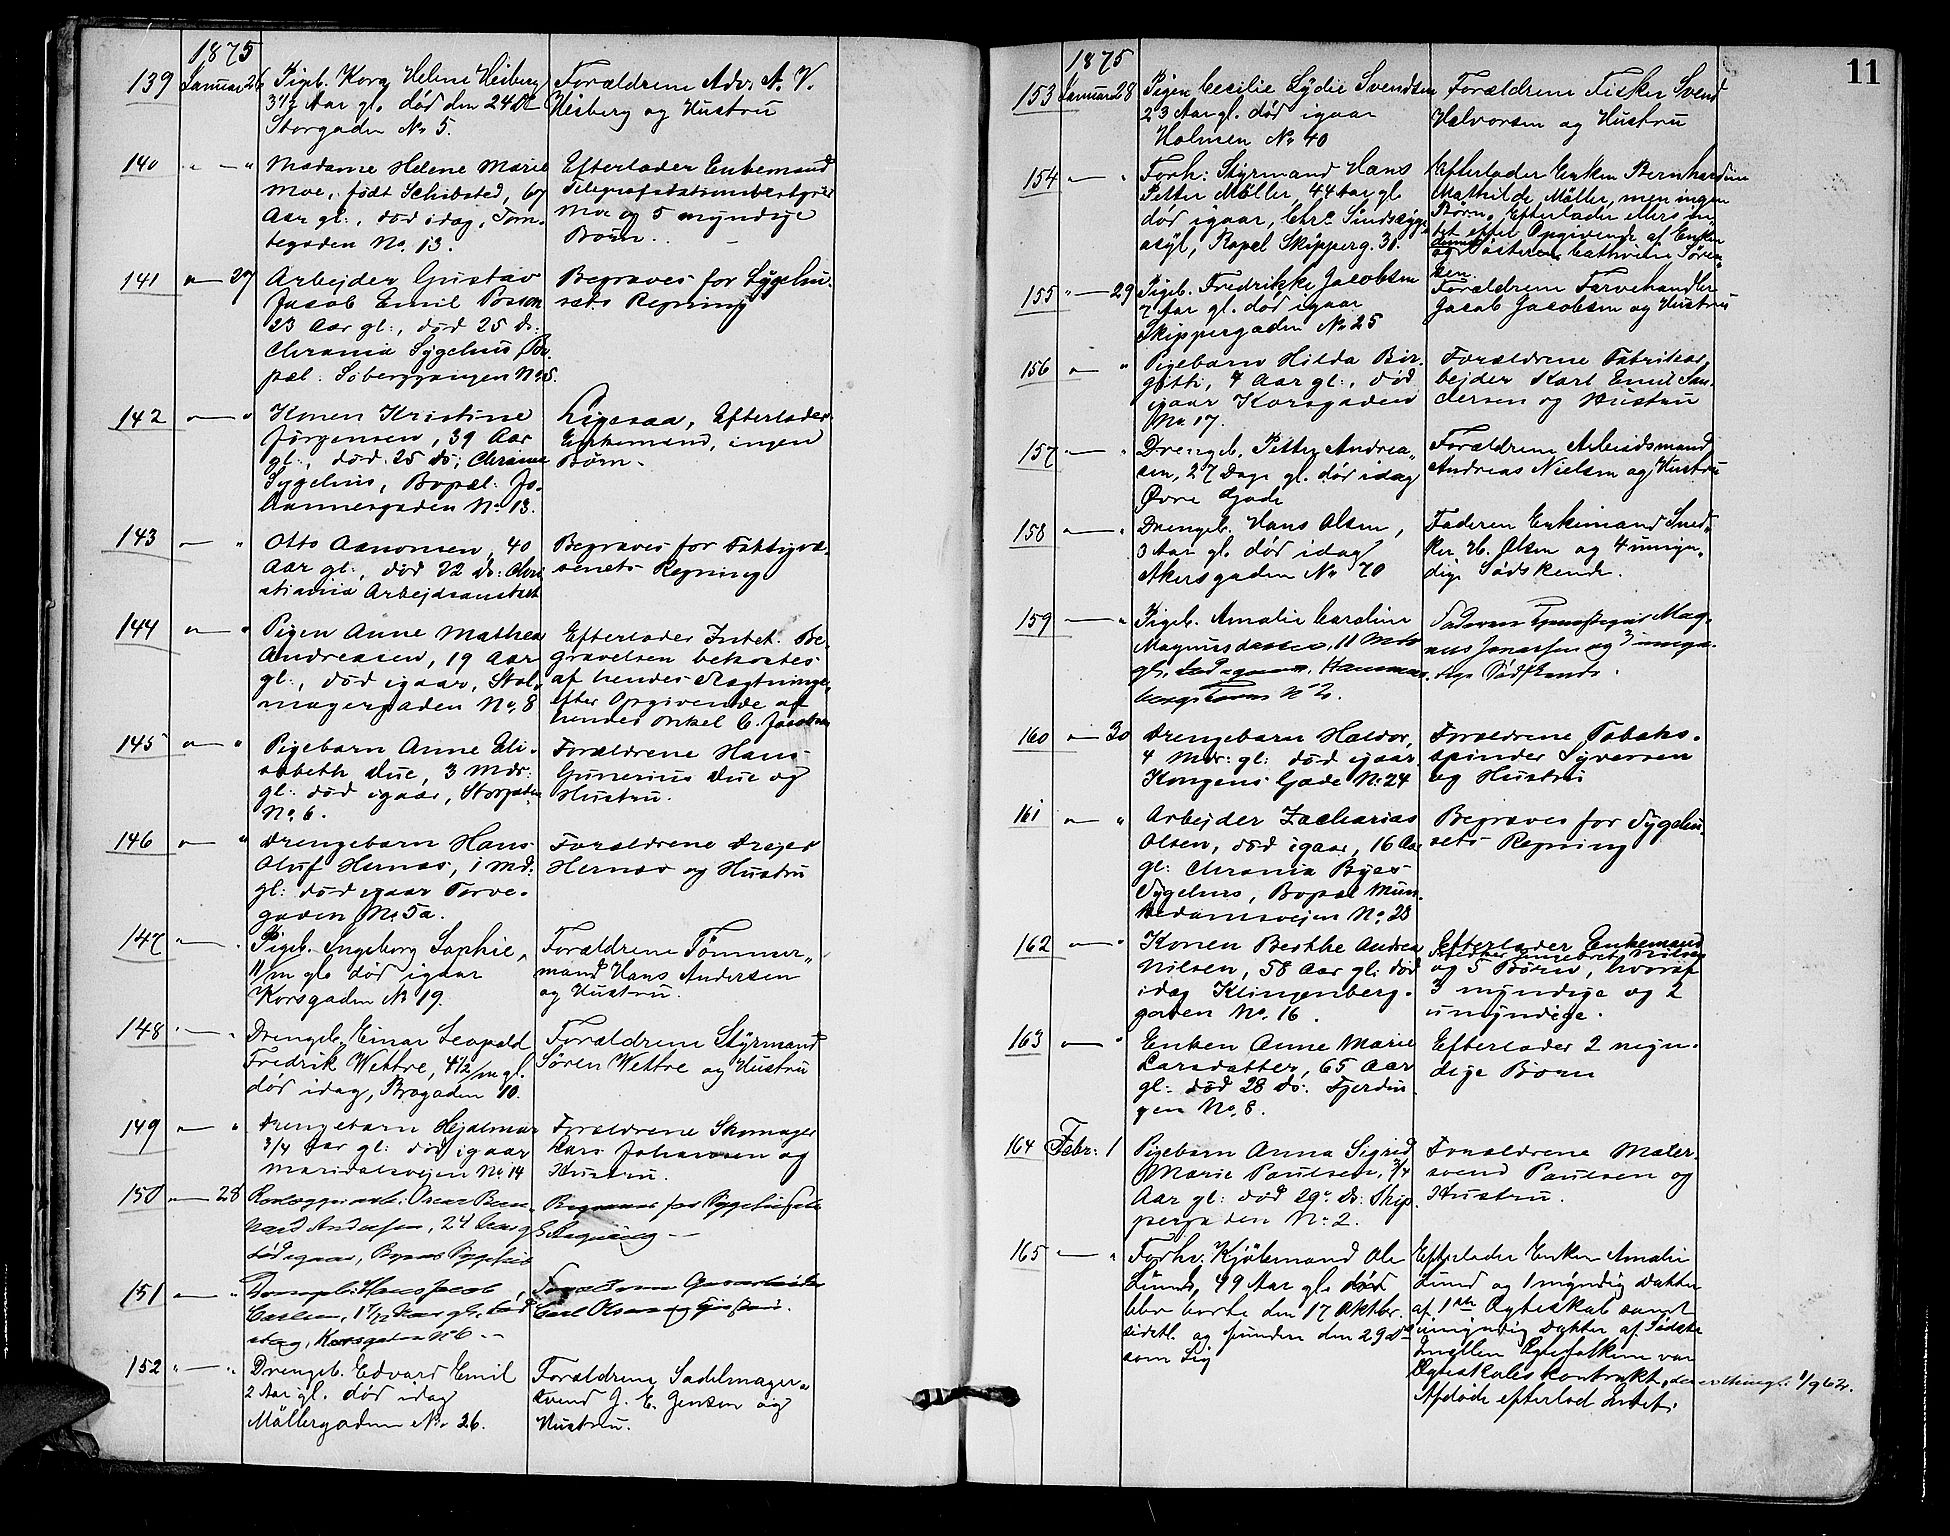 1875
139 Januar 26 Pigeb. Kora Helene Heiberg
3 1/2 Aar gl. død den 24 ds
Storgaden No 5.
Forældrene Adv. A. V.
Heiberg og Hustru
140 " — " Madame Helene Marie
Moe, født Schibsted, 67
Aar gl:, død idag, Tom-
tegaden No. 13.
Efterlader Enkemand
Telegrafstationsbestyrer
Moe og 5 myndige
Børn.
141 " — 27 Arbejder Gustav
Jacob Emil
23 Aar gl:, død 25 ds:
Chrania Sygehus, Bo-
pæl: Soberggangen No 5.
Begraves for Sygehu-
sets Regning
142 " — " Konen Kristine
Jørgensen, 39 Aar
gl:, død 25 ds; Chrania
Sygehus, Bopæl: Jo-
hannesgaden No. 13.
Ligesaa, Efterlader
Enkemand, ingen
Børn.
143 — " Otto Aanonsen, 40
Aar gl:, død 22 ds: Chri-
stiania Arbejdsanstalt
Begraves for Fattigvæ-
senets Regning
144 " — " Pigen Anne Mathea
Andreasen, 19 Aar
gl:, død igaar, Stol-
magergaden No. 8
Efterlader Intet. Be-
gravelsen bekostes
af hendes Slægtninge,
efter Opgivende af
hendes Onkel C. Jacobsen
145 " — " Pigebarn Anne Eli-
sabeth Due, 3 Mdr:
gl: død igaar, Storgaden
No. 6.
Forældrene Hans
Gunerius Due og
Hustru.
146 " — " Drengebarn Hans
Oluf Hernæs, 1 Md:
gl: død igaar Torve-
gaden No. 5a.
Forældrene Drejer
Hernæs og Hustru
147 " — " Pigeb. Ingeborg Sophie,
11/m gl. død igaar
Korsgaden No 19.
Forældrene Tømmer-
mand Hans Andersen
og Hustru.
148 " — " Drengeb. Einar Leopold
Fredrik Wettre, 4 1/2/m gl.
død idag, Brogaden 10.
Forældrene Styrmand
Søren Wettre og Hustru
149 " — " Drengebarn Hjalmar
3/4 Aar gl: død igaar
Maridalsveien No. 14
Forældrene Skomager
Lars Johansen og
Hustru.
150 " — 28 Oscar Bern-
hard Andersen, 24 Aar g
død igaar, Bopæl Sygehus
Begraves for Sygehusets
Regning —
151 " — " Drengeb. Hans Jacob
Carlsen, 1 7/12 Aar gl. død
idag, Korsgaden No 6 —
Forældrene
Carl Olsen og Hustru.
152 " — " Drengeb. Edvard Emil
2 Aar gl. død idag
Møllergaden No. 26.
Forældrene Sadelmager-
svend J. E. Jensen og
Hustru.
11
1875
153 Januar 28 Pigen Cecilie Lydie Svendsen
23 Aar gl. død igaar
Holmen No 40
Forældrene Fisker Svend
Halvorsen og Hustru
154 — " Forh: Styrmand Hans
Petter Møller, 44 Aar gl
død igaar, Chra Sindssyge-
asyl, Bopæl Skipperg. 30.
Efterlader Enken Bernhardine
Mathilde Møller, men ingen
Børn. Efterlader ellers in-
tet efter Opgivende af Enken
og Søsteren Cathrine Søren-
sen.
155 " — 29 Pigeb. Fredrikke Jacobsen
7 Aar gl. død igaar
Skippergaden No 25
Forældrene Farvehandler
Jacob Jacobsen og Hustru
156 " — " Pigebarn Hilda Bir-
gith, 4 Aar gl:, død
igaar Korsgaden
No. 17.
Forældrene Fabrikar-
bejder Karl Emil San-
dersen og Hustru
157 — " Drengeb. Petter Andrea-
sen, 27 Dage gl. død idag
Øvre Gade
Forældrene Arbeidsmand
Andreas Nielsen og Hustru
158 — " Drengeb. Hans Olsen,
3 Aar gl. død idag
Akersgaden No 70
Faderen Enkemand Sned-
ker H. Olsen og 4 umyn-
dige Sødskende.
159 — " Pigeb. Amalie Caroline
Magnusdatter, 11 Mdr
gl. død igaar, Hammers-
bergs No 2.
Faderen Mag-
nus Jonassen og 3 umyn-
dige Sødskende.
160 " — 30 Drengebarn Haldor,
4 Mdr: gl: død igaar
Kongens Gade No: 24
Forældrene Tobaks-
spinder Syversen
og Hustru
161 " — " Arbejder Zacharias
Olsen, død igaar, 16 Aar
gl: Chrania Byes
Sygehus, Bopæl Mun-
kedamsvejen No. 23
Begraves for Sygehu-
sets Regning
162 " — " Konen Berthe Andrea
Nilsen, 58 Aar gl: død
idag Klingenberg-
gaden No. 16.
Efterlader Enkemand
Snedker Ingebret Nilsen
og 5 Børn, hvoraf
3 myndige og 2
umyndige.
163 " — " Enken Anne Marie
Larsdatter, 65 Aar
gl: død 28 ds: Fjerdin-
gen No. 8.
Efterlader 2 myn-
dige Børn
164 Febr: 1 Pigebarn Anna Sigrid
Marie Paulsen, 3/4
Aar gl: død 29de ds: Skip-
pergaden No. 2.
Forældrene Maler-
svend Paulsen og
Hustru.
165 — " Forhv. Kjølemand Ole
Lund, 49 Aar gl. død
blev borte den 17 Oktbr.
sidstl. og funden den 29 ds
som Lig
Efterlader Enken Amalie
Lund og 1 myndig Datter
af 1ste Egteskab samt
umyndig Datter af Sidste
Imellem Egtefolkene var
Egteskabs kontrakt, der er thingl. 1/9 62.
Afdøde efterlod Intet.